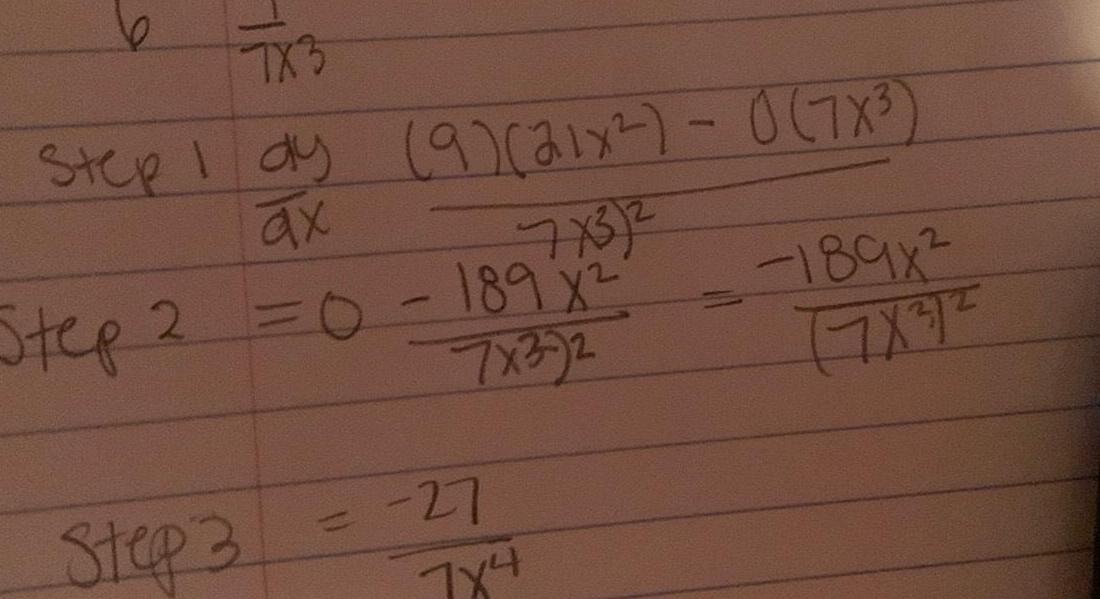 6 1/7x3
Step 1 dy/dx (9)(21x²) - 0(7x³) / 7x3)²
Step 2 = 0 - 189x² / 7x3)² = -189x² / (7x³)²
Step 3 = -27 / 7x⁴